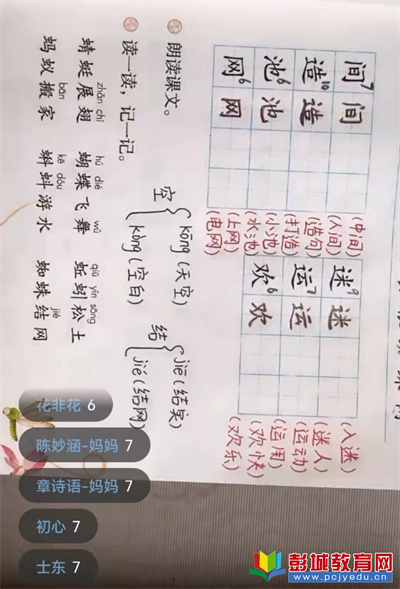 间7 间
造10 造
池6 池
网6 网
(中间)
(人间)
(造句)
(打造)
(小池)
(水池)
(上网)
(电网)
迷9 迷
运7 运
欢6 欢
(入迷)
(迷人)
(运动)
(运用)
(欢快)
(欢乐)
朗读课文。
读一读，记一记。
空 kōng(天空)
kòng(空白)
结 jiē(结实)
jié(结网)
zhǎn chì hú dié wǔ qiū yǐn sōng
蜻蜓展翅 蝴蝶飞舞 蚯蚓松土
bān kē dǒu jié
蚂蚁搬家 蝌蚪游水 蜘蛛结网
花非花 6
陈妙涵-妈妈 7
章诗语-妈妈 7
初心 7
士东 7
彭城教育网
www.pcjyedu.cn